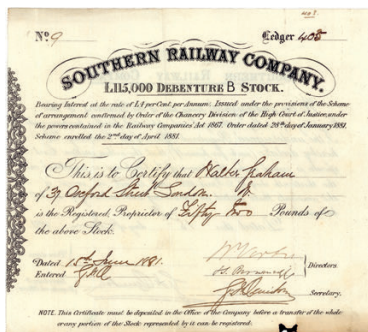 No. 9
Ledger 405
SOUTHERN RAILWAY COMPANY.
£115,000 DEBENTURE B STOCK.
Bearing Interest at the rate of £4 per Cent. per Annum. Issued under the provisions of the Scheme
of arrangement confirmed by Order of the Chancery Division of the High Court of Justice, under
the powers contained in the Railway Companies' Act 1867. Order dated 28th day of January 1881.
Scheme enrolled the 2nd day of April 1881.
This is to Certify that Walter Graham
of 39 Oxford Street London
is the Registered Proprietor of Fifty Two Pounds of
the above Stock.
Dated 15th June 1881.
Entered
Directors
Secretary.
NOTE. This Certificate must be deposited in the Office of the Company before a transfer of the whole
or any portion of the Stock represented by it can be registered.